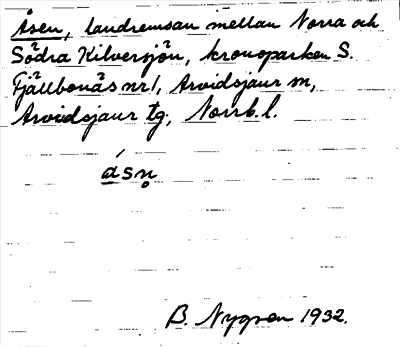 Åsen, landremsan mellan Norra och
Södra Kilversjön, kronoparken S.
Fjällbonäs nr 1, Arvidsjaur sn,
Arvidsjaur tg, Norrb. l.
ásn̥
B. Nygren 1932.